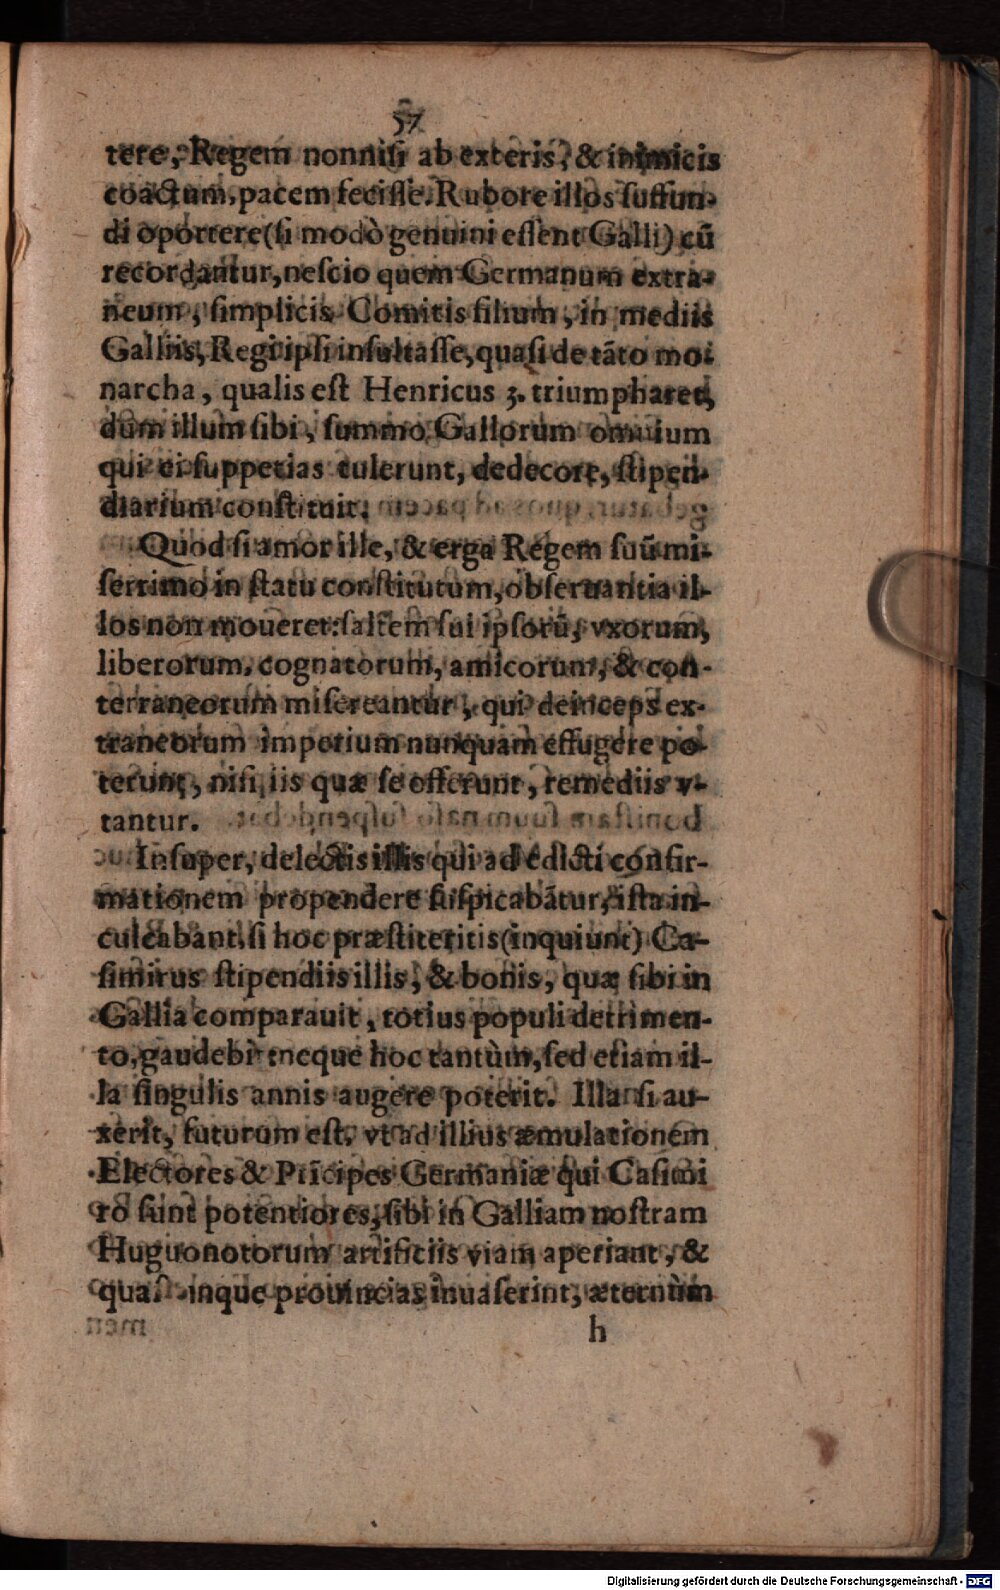 57
tere, Regem nonnisi ab exteris, & inimicis
coactum, pacem fecisse. Rubore illos suffun-
di oportere (si modò genuini essent Galli) cũ
recordantur, nescio quem Germanum extra-
neum, simplicis Comitis filium, in mediis
Galliis, Regi ipsi insultasse, quasi de tãto mo
narcha, qualis est Henricus 3. triumpharet,
dum illum sibi, summo Gallorum omnium
qui ei suppetias tulerunt, dedecore, stipen-
diarium constituit.
Quod si amor ille, & erga Regem suũ mi-
serrimo in statu constitutum, obseruantia il-
los non moueret: saltem sui ipsorũ, vxorum,
liberorum, cognatorum, amicorum, & con-
terraneorum misereantur, qui deinceps ex-
traneorum imperium nunquam effugere po-
terunt, nisi iis quæ se offerunt, remediis v-
tantur.
Insuper, delectis illis qui ad edicti confir-
mationem propendere suspicabãtur, ista in-
culcabant, si hoc præstiteritis (inquiunt) Ca-
simirus stipendiis illis, & bonis, quæ sibi in
Gallia comparauit, totius populi detrimen-
to, gaudebit neque hoc tantùm, sed etiam il-
la singulis annis augere poterit. Illa si au-
xerit, futurum est, vt ad illius æmulationem
Electores & Prĩcipes Germaniæ qui Casimi
ro sunt potentiores, sibi in Galliam nostram
Huguonotorum artificiis viam aperiant, &
quascunque prouincias inuaserint, æternùm
h
Digitalisierung gefördert durch die Deutsche Forschungsgemeinschaft - DFG